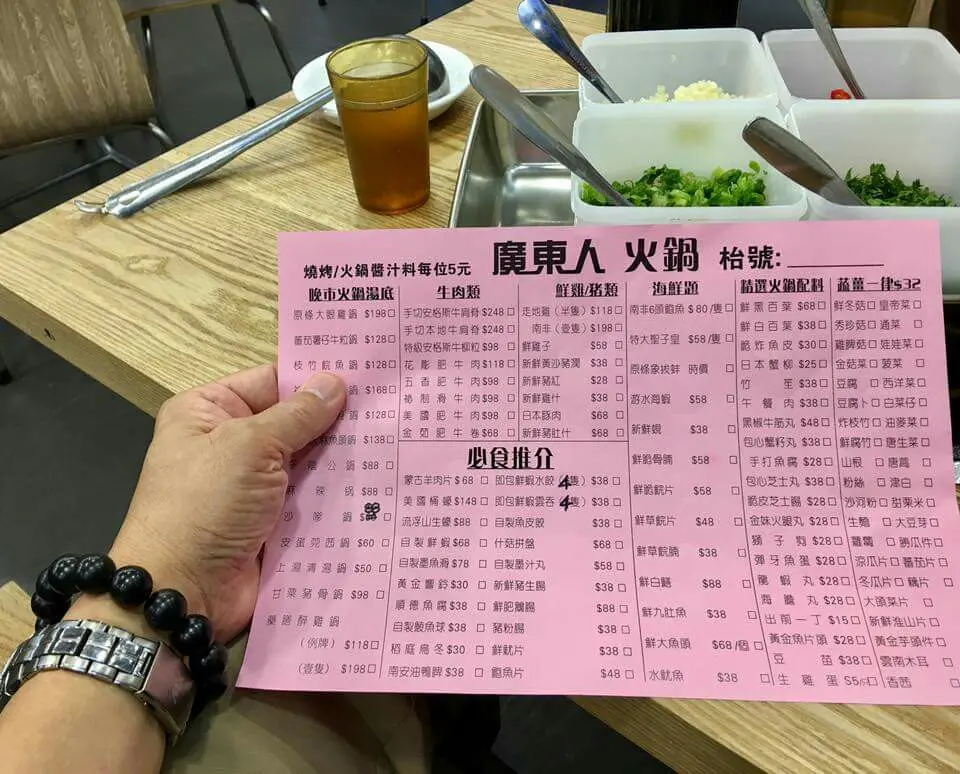 燒烤/火鍋醬汁料每位5元 廣東人 火鍋 枱號:
晚市火鍋湯底
原條大眼雞鍋 $198
蕃茄薯仔牛粒鍋 $128
枝竹鯇魚鍋 $128
$168
$128
魚頭鍋 $138
公鍋 $88
麻辣鍋 $88
沙嗲鍋
皮蛋芫茜鍋 $60
上湯清湯鍋 $50
甘菜豬骨鍋 $98
藥膳醉雞鍋
(例牌) $118
(壹隻) $198
牛肉類
手切安格斯牛肩脊 $248
手切本地牛肩脊 $248
特級安格斯牛柳粒 $98
花彫肥牛肉 $118
五香肥牛肉 $98
秘制滑牛肉 $98
美國肥牛肉 $98
金菇肥牛卷 $68
鮮雞/豬類
走地雞(半隻) $118
南非(壹隻) $198
鮮雞子 $58
新鮮黃沙豬潤 $38
新鮮豬紅 $28
新鮮雞什 $38
日本豚肉 $68
新鮮豬肚什 $68
必食推介
蒙古羊肉片 $68
美國桶蠔 $148
流浮山生蠔 $88
自製鮮蝦 $68
自製墨魚滑 $78
黃金響鈴 $30
順德魚腐 $38
自製鯪魚球 $38
稻庭烏冬 $30
南安油鴨脾 $38
即包鮮蝦水餃 4隻) $38
即包鮮蝦雲吞 4隻) $38
自製魚皮餃 $38
什菇拼盤 $68
自製墨汁丸 $58
新鮮豬土膶 $38
鮮肥鵝腸 $88
豬粉腸 $38
鮮魷片 $38
鮑魚片 $48
海鮮題
南非6頭鮑魚 $80/隻
特大聖子皇 $58/隻
原條象拔蚌 時價
游水海蝦 $58
新鮮蜆 $38
鮮脆骨腩 $58
鮮脆鯇片 $58
鮮草鯇片 $48
鮮草鯇腩 $38
鮮白鱔 $88
鮮九肚魚 $38
鮮大魚頭 $68/個
水魷魚 $38
精選火鍋配料
鮮黑百葉 $68
鮮白百葉 $38
脆炸魚皮 $30
日本蟹柳 $25
竹笙 $38
午餐肉 $38
黑椒牛筋丸 $48
包心蟹籽丸 $38
手打魚腐 $28
包心芝士丸 $38
脆皮芝士腸 $28
金妹火腿丸 $28
獅子狗 $28
彈牙魚蛋 $28
龍蝦丸 $28
海膽丸 $28
出前一丁 $15
黃金魚片頭 $28
豆苗 $38
生雞蛋 $5/
蔬菌一律$32
鮮冬菇 皇帝菜
秀珍菇 通菜
雞脾菇 娃娃菜
金菇菜 菠菜
豆腐 西洋菜
豆腐卜 白菜仔
炸枝竹 油麥菜
鮮腐竹 唐生菜
山根 唐蒿
粉絲 津白
沙河粉 甜栗米
生麵 大豆芽
蘿蔔 勝瓜件
涼瓜片 蕃茄片
冬瓜片 藕片
大頭菜片
新鮮淮山片
黃金芋頭件
雲南木耳
香茜